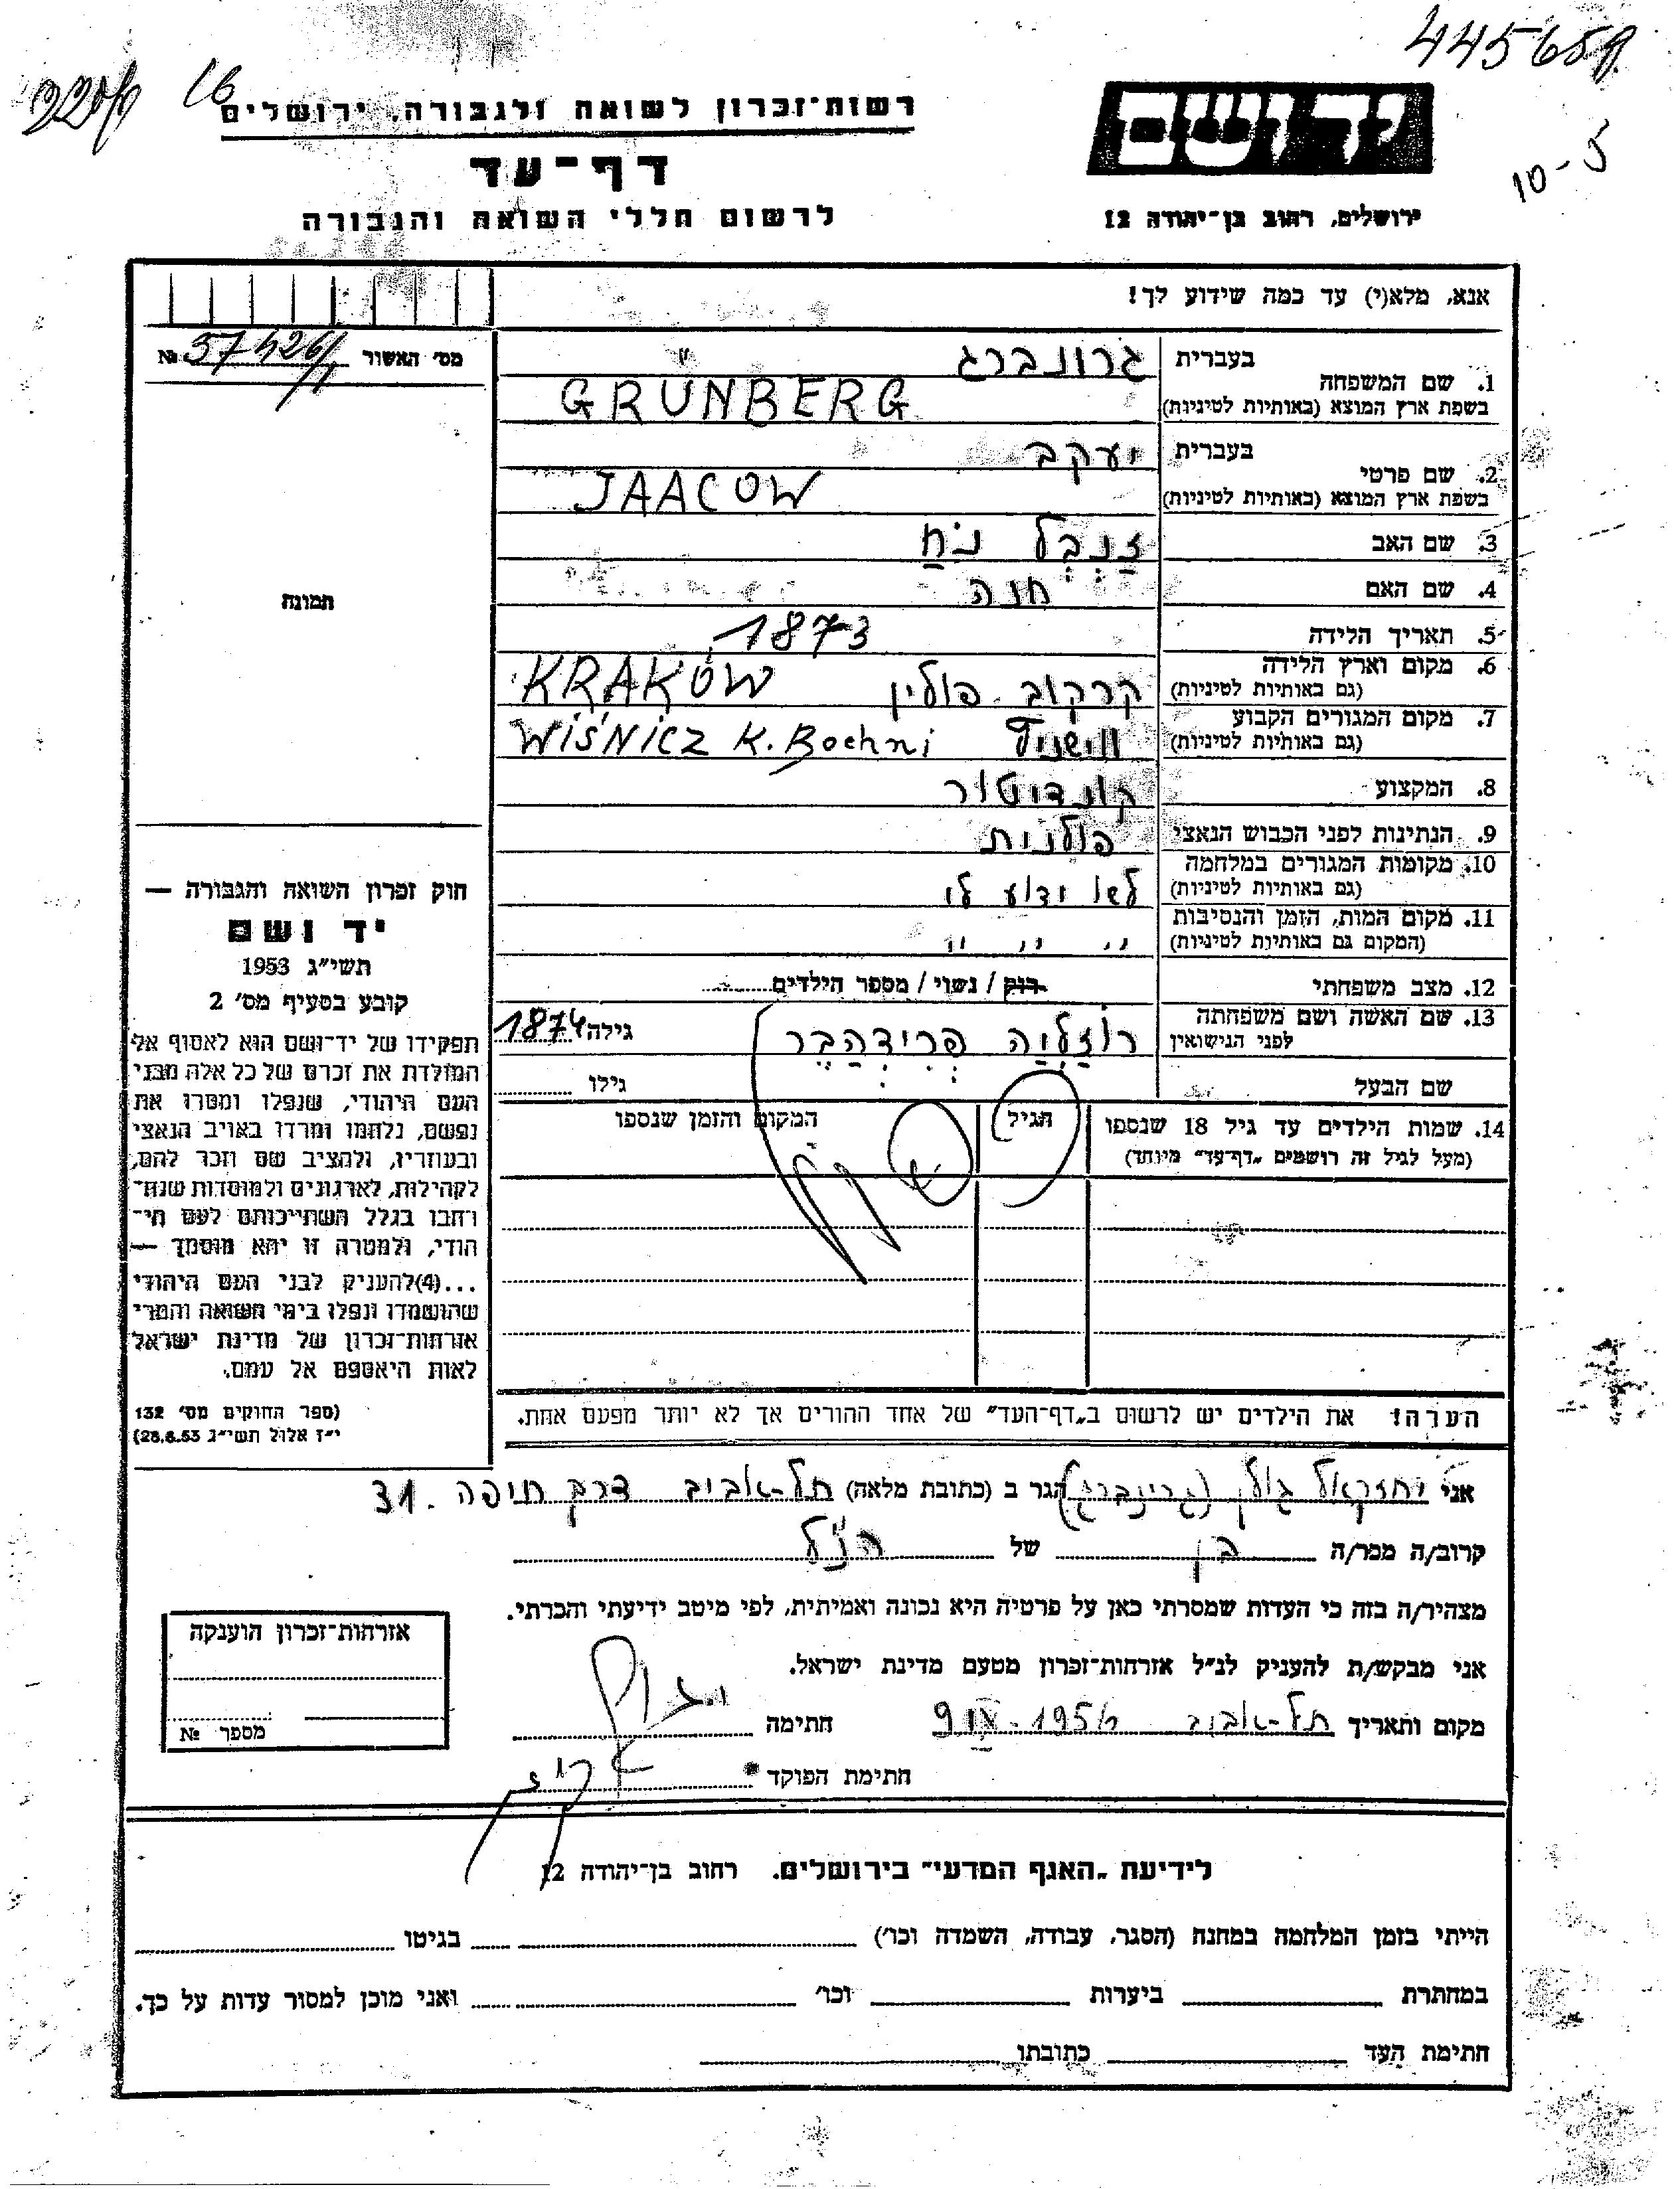 445658
220/ 16
רשות־זכרון לשואה ולגבורה, ירושלים
יד ושם
דף־עד
10-5
לרשום חללי השואה והגבורה
ירושלים, רחוב בן־יהודה 12
אנא, מלא(י) עד כמה שידוע לך!
מס׳ האשור № 37426/1
1. שם המשפחה בעברית גרונברג
בשפת ארץ המוצא (באותיות לטיניות) GRUNBERG
2. שם פרטי בעברית יעקב
בשפת ארץ המוצא (באותיות לטיניות) JAACOW
3. שם האב זַנְבְל נֹחַ
4. שם האם חנה
5. תאריך הלידה 1873
6. מקום וארץ הלידה (גם באותיות לטיניות) קרקוב - פולין KRAKÓW
7. מקום המגורים הקבוע (גם באותיות לטיניות) WIŚNICZ K. Bochni
8. המקצוע קונדיטור
9. הנתינות לפני הכבוש הנאצי פולנית
10. מקומות המגורים במלחמה (גם באותיות לטיניות) לא ידוע לי
11. מקום המות, הזמן והנסיבות (המקום גם באותיות לטיניות) " " "
12. מצב משפחתי רוק / נשוי / מספר הילדים
13. שם האשה ושם משפחתה לפני הנישואין רוֹזַלִיָה פְרִידְהַבֶר גילה 1874
שם הבעל גילו
14. שמות הילדים עד גיל 18 שנספו הגיל המקום והזמן שנספו
(מעל לגיל זה רושמים „דף־עד" מיוחד)
תמונה
חוק זכרון השואה והגבורה —
יד ושם
תשי״ג 1953
קובע בסעיף מס׳ 2
תפקידו של יד־ושם הוא לאסוף אל
המולדת את זכרם של כל אלה מבני
העם היהודי, שנפלו ומסרו את
נפשם, נלחמו ומרדו באויב הנאצי
ובעוזריו, ולהציב שם וזכר להם,
לקהילות, לארגונים ולמוסדות שנח־
רבו בגלל השתייכותם לעם הי־
הודי, ולמטרה זו יהא מוסמך —
...(4)להעניק לבני העם היהודי
שהושמדו ונפלו בימי השואה והמרי
אזרחות־זכרון של מדינת ישראל
לאות היאספם אל עמם.
(ספר החוקים מס׳ 132
י״ז אלול תשי״ג 28.8.53)
הערה! את הילדים יש לרשום ב„דף־העד" של אחד ההורים אך לא יותר מפעם אחת.
אני יחזקאל גולן (גרינברג) הגר ב (כתובת מלאה) תל-אביב דרך חיפה 31.
קרוב/ה מכר/ה בן של הנ״ל
מצהיר/ה בזה כי העדות שמסרתי כאן על פרטיה היא נכונה ואמיתית, לפי מיטב ידיעתי והכרתי.
אני מבקש/ת להעניק לנ״ל אזרחות־זכרון מטעם מדינת ישראל.
מקום ותאריך תל-אביב 9 IX-1956 חתימה
חתימת הפוקד
אזרחות־זכרון הוענקה
מספר №
לידיעת „האגף המדעי" בירושלים. רחוב בן־יהודה 12
הייתי בזמן המלחמה במחנה (הסגר, עבודה, השמדה וכו׳) בגיטו
במחתרת ביערות וכו׳ ואני מוכן למסור עדות על כך.
חתימת העד כתובתו